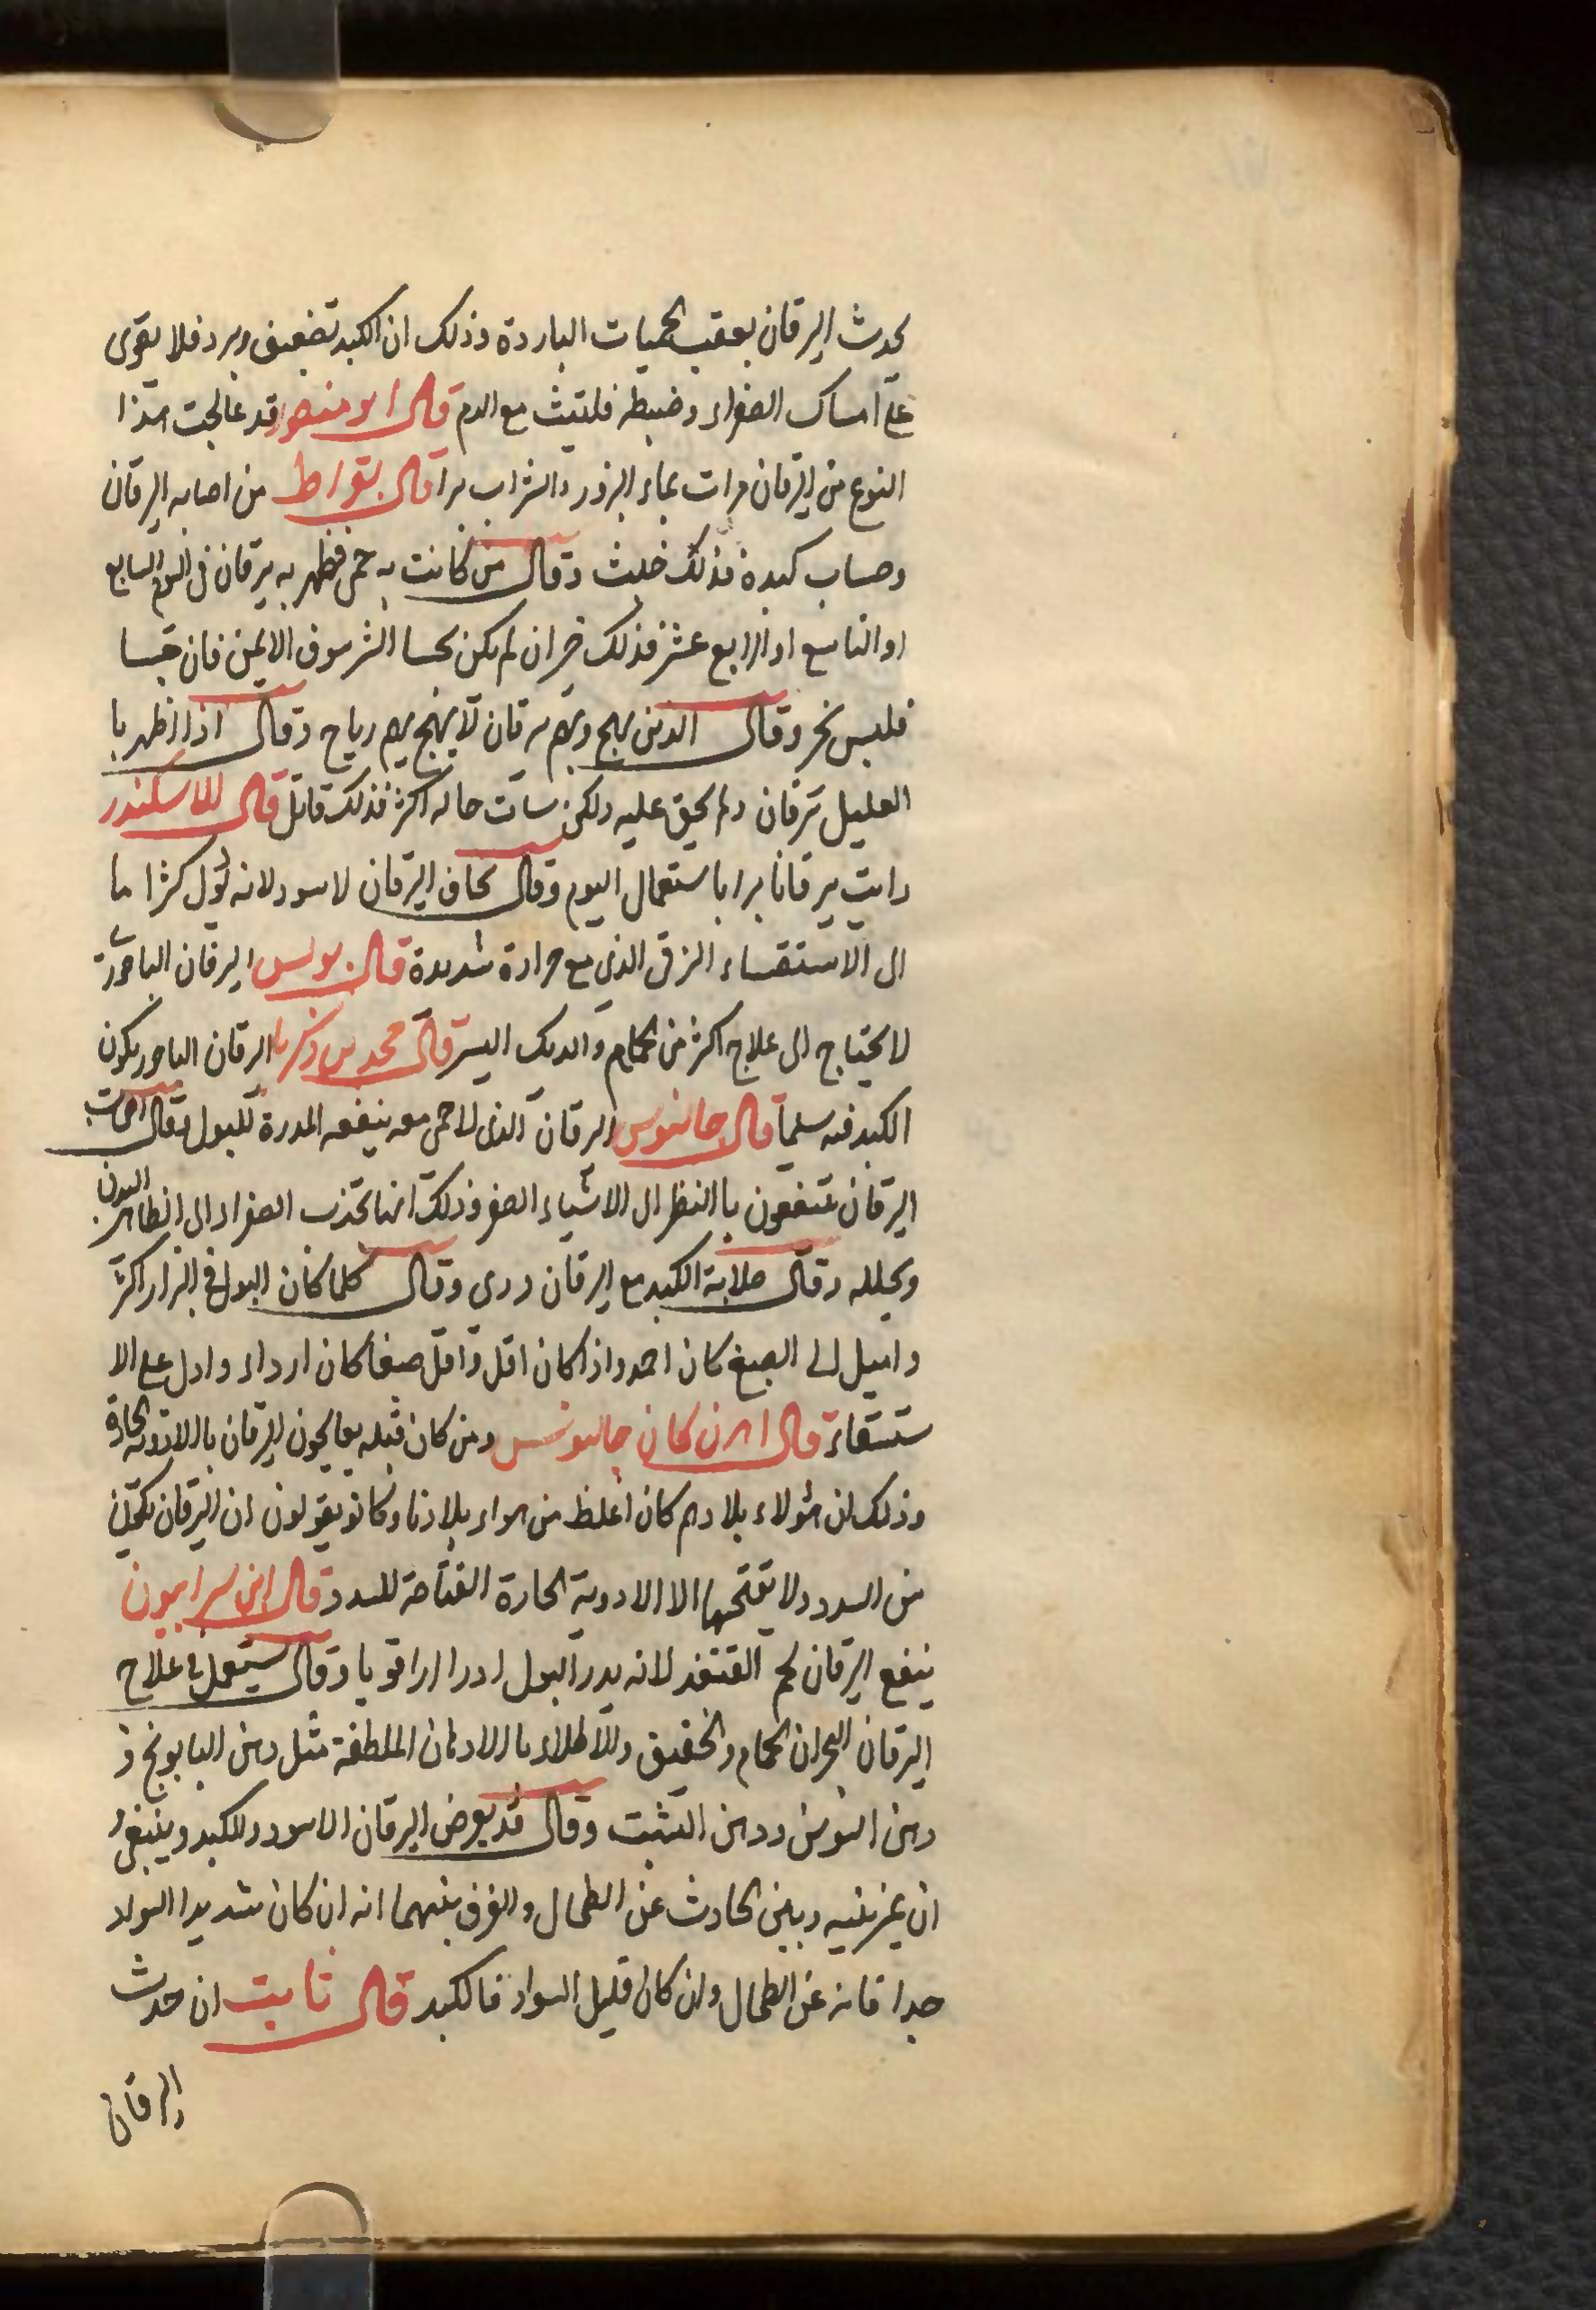 يحدث اليرقان بعقب الحميات الباردة وذلك ان الكبد تضعف وبرد فلا يقوى
على امساك الصفراء وضبطه فلتيث مع الدم قال ابو منصور قد عالجت هذا
النوع من اليرقان مرات بماء البزور والشراب برا قال بقراط من اصابه اليرقان
وصاب كبده فذلك خبيث وقال من كانت به حمى فظهر به يرقان في اليوم السابع
او التاسع او الرابع عشر فذلك خير ان لم يكن يحسا الشرسوف الايمن فان حسا
فليس بخير وقال الذين يهج وبهم يرقان لا يهيج بهم رياح وقال اذا ظهر با
العليل يرقان ولم يحق عليه ولكن ساات حاله اكثر فذلك قاتل قال للاسكندر
رايت يرقانا برا باستعمال اليوم وقال يخاف اليرقان لاسود لانه يؤل كثرا ما
الى الاستقساء الزقى الذي مع حرارة شديدة قال بولس اليرقان الباحورى
لا يحتاج الى علاج اكثر من الحمام والدلك اليسير قال محمد بن زكريا اليرقان الباحور يكون
الكبد فيه سلما قال جالنوس اليرقان الذى لا حمى معه ينفعه المدرة للبول وقال اصحاب
اليرقان ينتفعون باالنظر الى الاشياء الصفر وذلك انها تجذب الصفراء الى الظاهر البدن
ويحلله وقال صلابة الكبد مع اليرقان ردى وقال كلما كان البول فى اليرقان اكثر
واميل الى الصبغ كان احمد واذا كان اقل واقل صبغا كان ارداء وادل على الا
ستسقاء قال اهرن كان جالنوس ومن كان قبله يعالجون اليرقان باالادوية الحارة
وذلك ان هؤلاء بلادهم كان اغلظ من هواء بلادنا وكانو يقولون ان اليرقان يكون
من السدد ولا يفتحها الا الادوية الحارة الفتاحة للسدد قال ابن سرابيون
ينفع اليرقان لحم القنفذ لانه يدر البول ادرارا قويا وقال يستعمل في علاج
اليرقان البحران الحمام والخفيق وللاطلاء باالادهان الملطفة مثل دهن البابونج و
دهن السوسن ودهن الشبت وقال قد يعرض اليرقان الاسود للكبد وينبغى
ان يميز بينه وبين الحادث عن الطحال والفرق بينهما انه ان كان شديدا السواد
جدا فانه عن الطحال وان كان قليل السواد فالكبد قال ثابت ان حدث
اليرقان